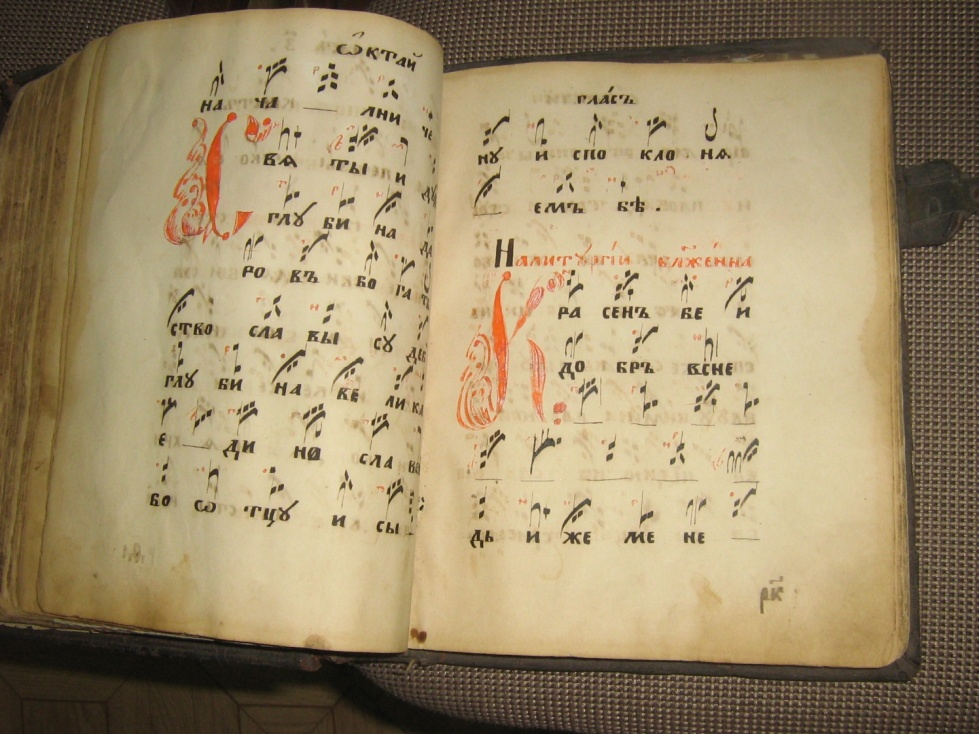 Ѡктай
на ча лни че
Свя ты и ду
глу би на да
ро въ бо га т
ство сла вы су деб
глу би на ве ли ка
е ди но сла в
бо ѡ тцу и сы
гласъ
ну и спо кло ня
емъ бѣ .
На литꙋргїи блаже́нна
Кра сенъ бе и
до бръ в сне
дь и же ме не
рк